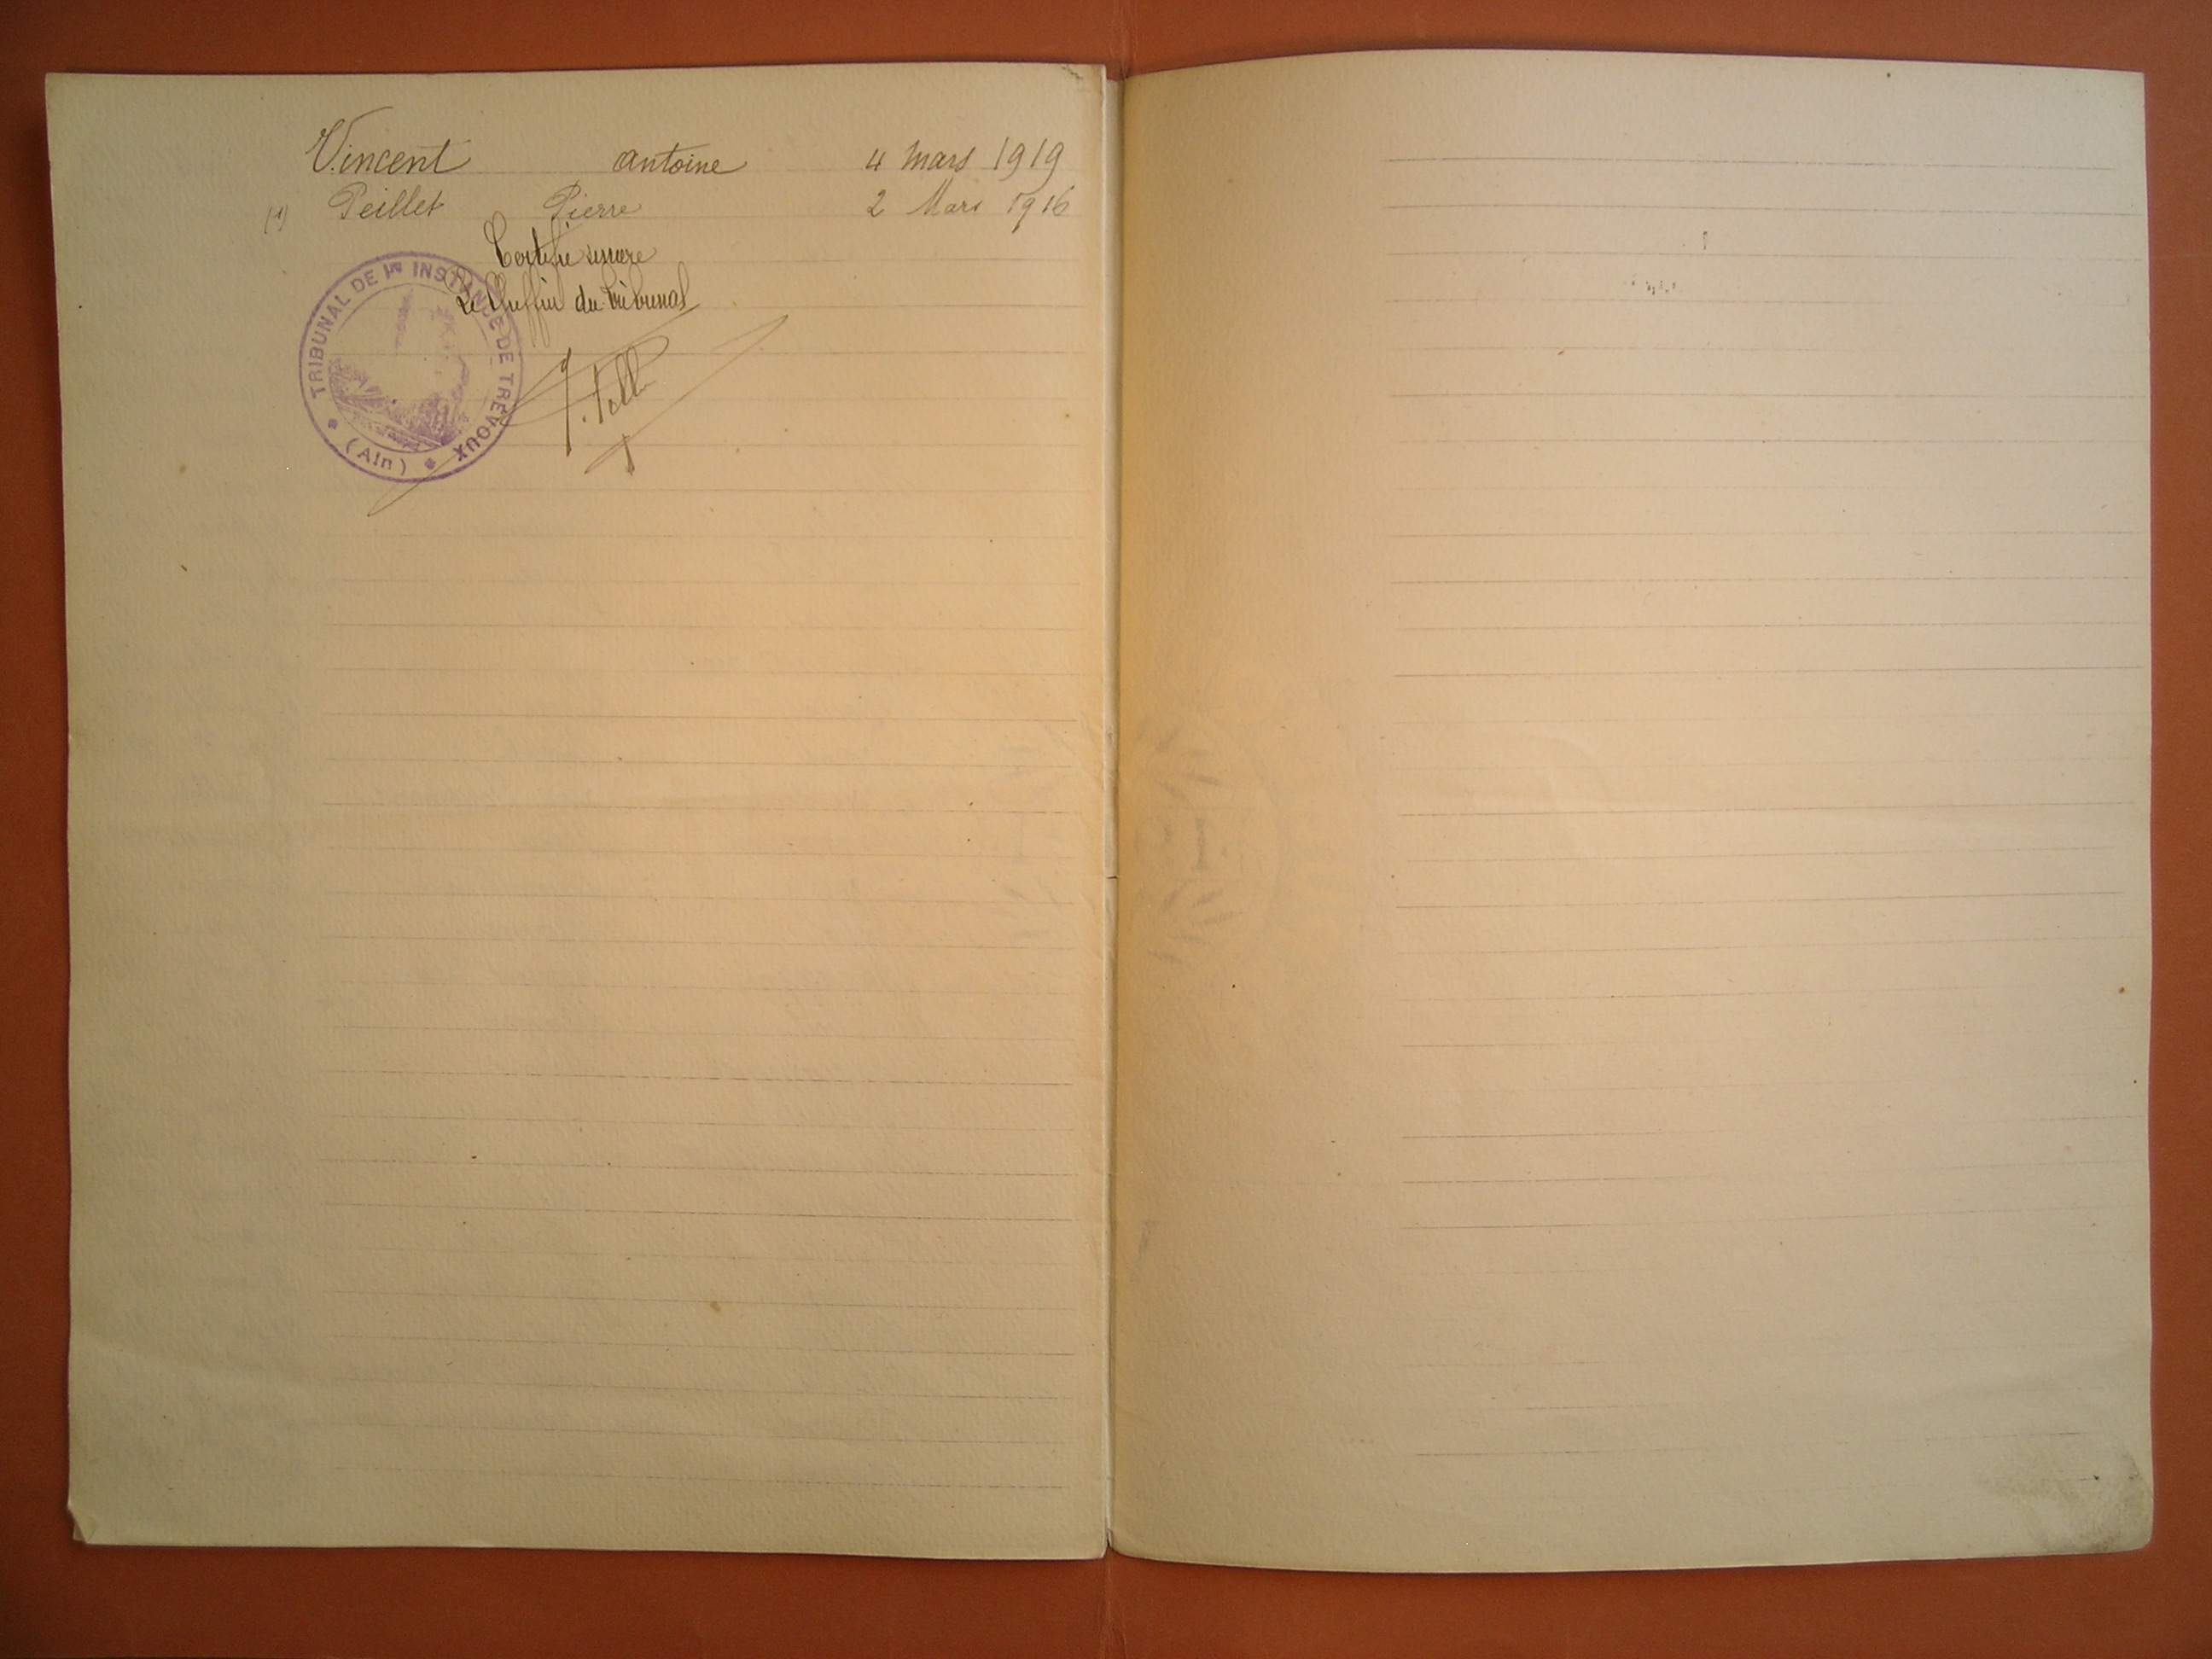 Vincent antoine 4 mars 1919
(1) Peillet Pierre 2 Mars 1916
Certifié sincère
Le Greffier du Tribunal
TRIBUNAL DE 1re INSTANCE DE TRÉVOUX
(Ain)